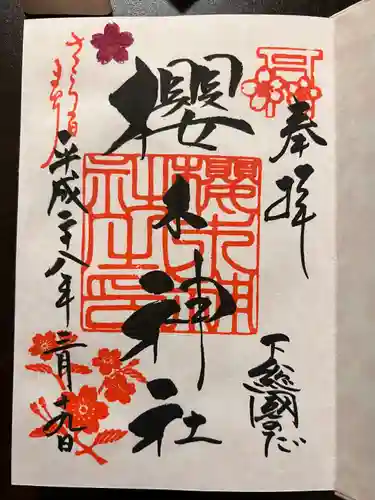 奉拝
下総國のだ
櫻木神社
さくらの日
まいり
平成二十八年三月十九日